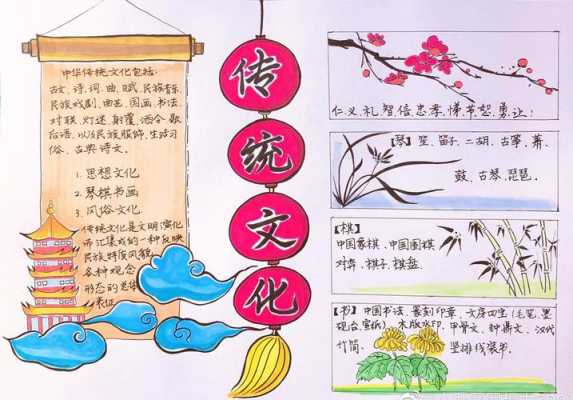 中华传统文化包括:
古文、诗、词、曲、赋、民族音乐、
民族戏剧、曲艺、国画、书法、
对联、灯谜、射覆、酒令、歇
后语、以及民族服饰、生活习
俗、古典诗文。
1. 思想文化
2. 琴棋书画
3. 风俗文化
传统文化是文明演化
而汇集成的一种反映
民族特质风貌
各种观念
形态的总体
表征
传统文化
仁、义、礼、智、信、忠、孝、悌、节、恕、勇、让;
【琴】笙、笛子、二胡、古筝、萧、
鼓、古琴、琵琶。
【棋】
中国象棋、中国围棋
对弈、棋子、棋盘
【书】中国书法、篆刻印章、文房四宝(毛笔、墨
砚台、宣纸)、木版水印、甲骨文、钟鼎文、汉代
竹简、竖排线装书。